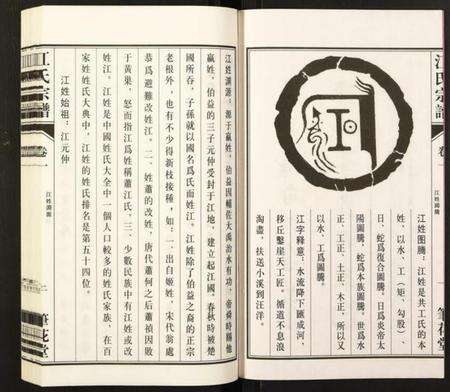 江氏宗譜
卷一
江姓圖騰
筆花堂
江姓图腾：江姓是共工氏的本
姓，以水、工（矩，勾股）、
日、蛇爲復合圖騰，日爲炎帝太
陽圖騰，蛇爲本族圖騰。世爲水
正、工正、土正、木正，所以又
以水、工爲圖騰。
江字釋意：水流降下匯成河，
移丘鑿崖天工匠。循道不息浪
淘盡，扶送小溪到汪洋。
江氏宗譜
卷一
江姓淵源
二
筆花堂
江姓渊源：源于嬴姓，伯益因輔佐大禹治水有功，帝舜時賜他
嬴姓，伯益的三子元仲受封于江地，建立起江國，春秋時被楚
國所吞，子孫就以國名爲氏而江姓。江姓除了伯益之裔的正宗
老根外，也有不少得新枝接種，如：一、出自姬姓，宋代翁處
恭爲避難改姓江。二、姓蕭的改姓，唐代蕭何之后蕭禎因敗
于黄巢，怒而指江爲姓稱蕭江氏，三、少數民族中有江姓或改
姓江。江姓是中國姓氏大全中一個人口較多的姓氏家族，在百
家姓姓氏大典中，江姓的姓氏排名是第五十四位。
江姓始祖：江元仲